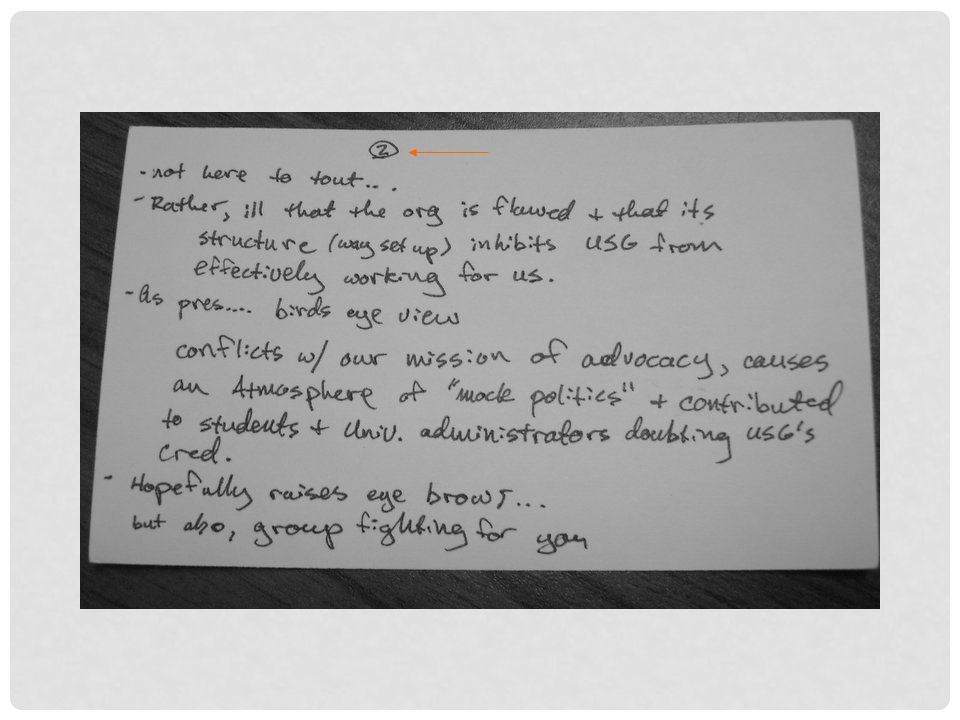 2
- not here to tout...
- Rather, ill that the org is flawed + that its
structure (way set up) inhibits USG from
effectively working for us.
- As pres.... birds eye view
conflicts w/ our mission of advocacy, causes
an Atmosphere of "mock politics" + contributed
to students + Univ. administrators doubting USG's
cred.
- Hopefully raises eye brows...
but also, group fighting for you